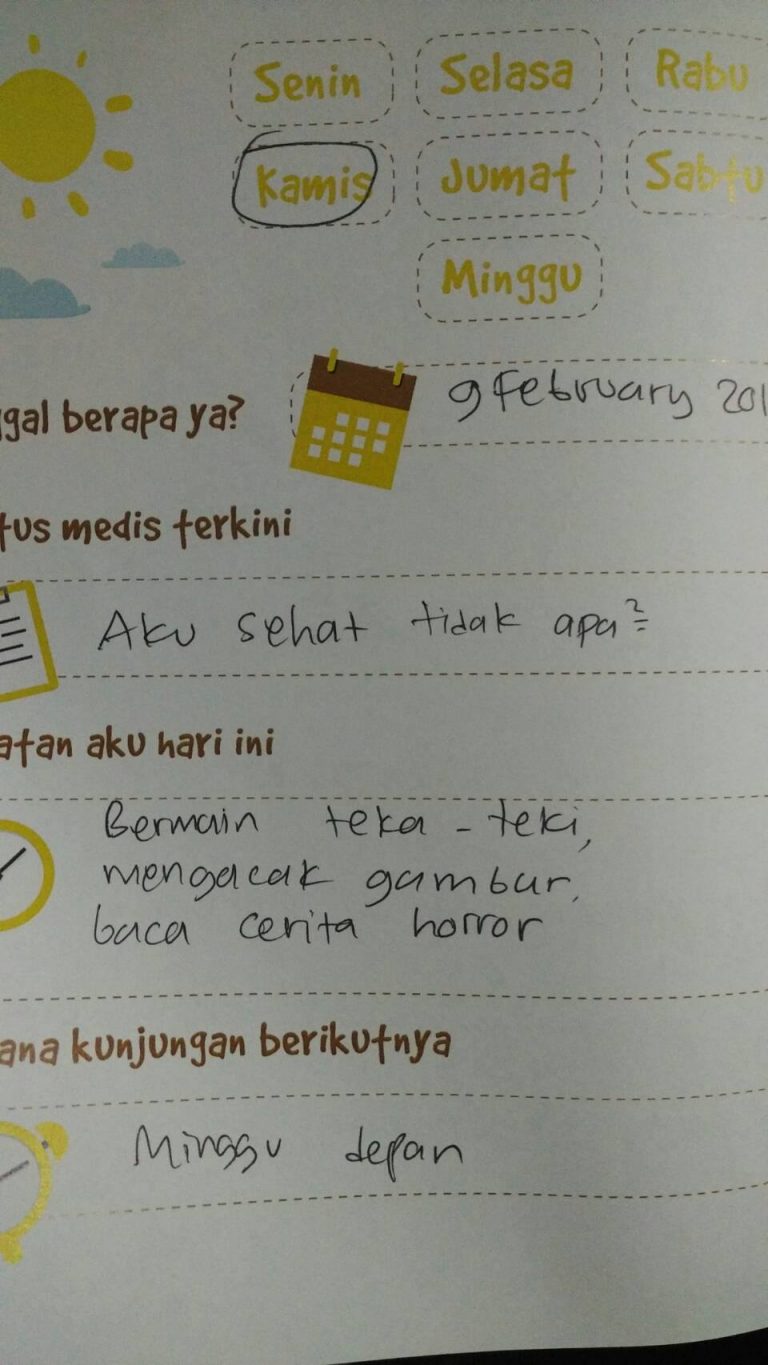 Senin Selasa Rabu
Kamis Jumat Sabtu
Minggu
ggal berapa ya?
9 February 201
tus medis terkini
Aku sehat tidak apa²
atan aku hari ini
Bermain teka - teki,
mengacak gambar,
baca cerita horror
ana kunjungan berikutnya
Minggu depan